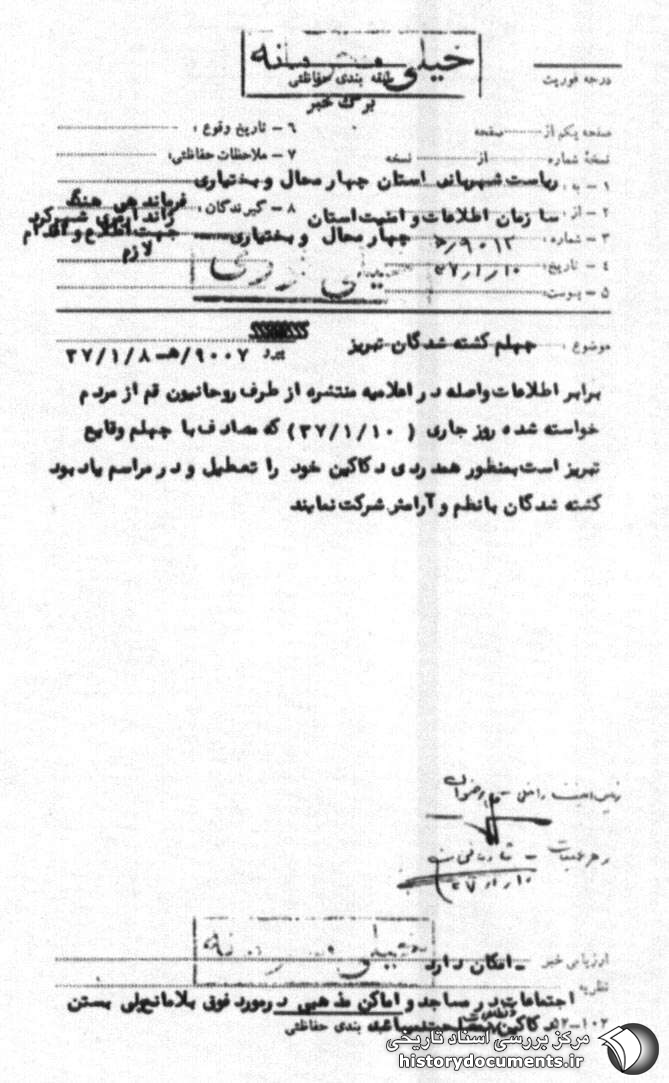 خیلی محرمانه
طبقه بندی حفاظتی
برگ خبر
درجه فوریت
صفحه یکم از صفحه
نسخهٔ شماره از نسخه
۱ - به: ریاست شهربانی استان چهارمحال و بختیاری
۲ - از: سازمان اطلاعات و امنیت استان
چهارمحال و بختیاری
۳ - شماره: ۹۰۱۲/ه
۴ - تاریخ: ۳۷/۱/۱۰
۵ - پیوست:
۶ - تاریخ وقوع:
۷ - ملاحظات حفاظتی:
۸ - گیرندگان: فرماندهی هنگ
ژاندارمری شهرکرد
جهت اطلاع و اقدام
لازم
خیلی فوری
موضوع: چهلم کشته شدگان تبریز
۹۰۰۷/ه‍ - ۳۷/۱/۸
برابر اطلاعات واصله در اعلامیه منتشره از طرف روحانیون قم از مردم
خواسته شده روز جاری (۳۷/۱/۱۰) که مصادف با چهلم وقایع
تبریز است بمنظور همدردی دکاکین خود را تعطیل و در مراسم یادبود
کشته شدگان با نظم و آرامش شرکت نمایند
رئیس امنیت داخلی -
رهبر عملیات -
۳۷/۱/۱۰
خیلی محرمانه
ارزیابی خبر - امکان دارد
نظریه
اجتماعات در مساجد و اماکن مذهبی در مورد فوق بلامانع ولی بستن
۱۰۲-۵۲ دکاکین بمصلحت نمیباشد
بندی حفاظتی
مرکز بررسی اسناد تاریخی
historydocuments.ir